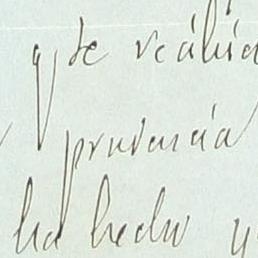 y de reáliza
prudencia
ha hecho y